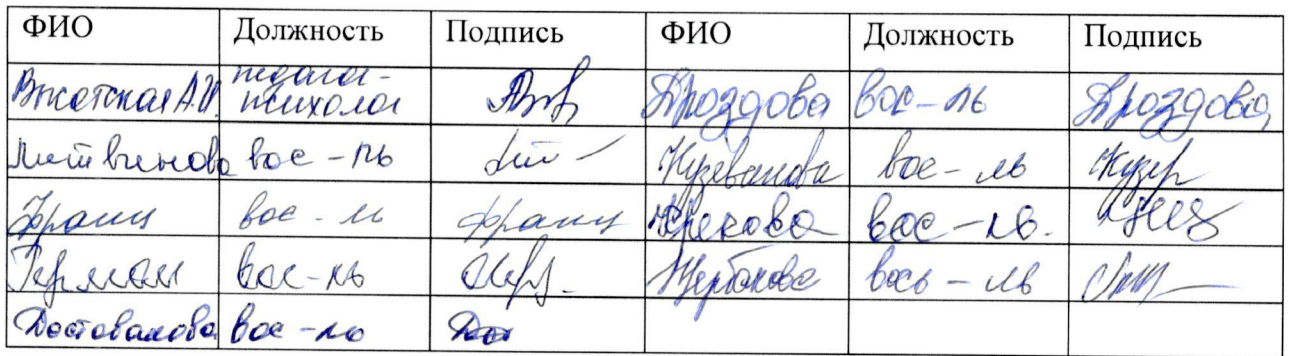 ФИО Должность Подпись ФИО Должность Подпись
педагог-
А.И. психолог Дроздова вос-ль Дроздова
Литвинова вос-ль Кузеванова вос-ль Кузер
Франц вос-ль Франц Крекова вос-ль.
Герман вос-ль Щербакова вось-ль
Достовалова вос-ль